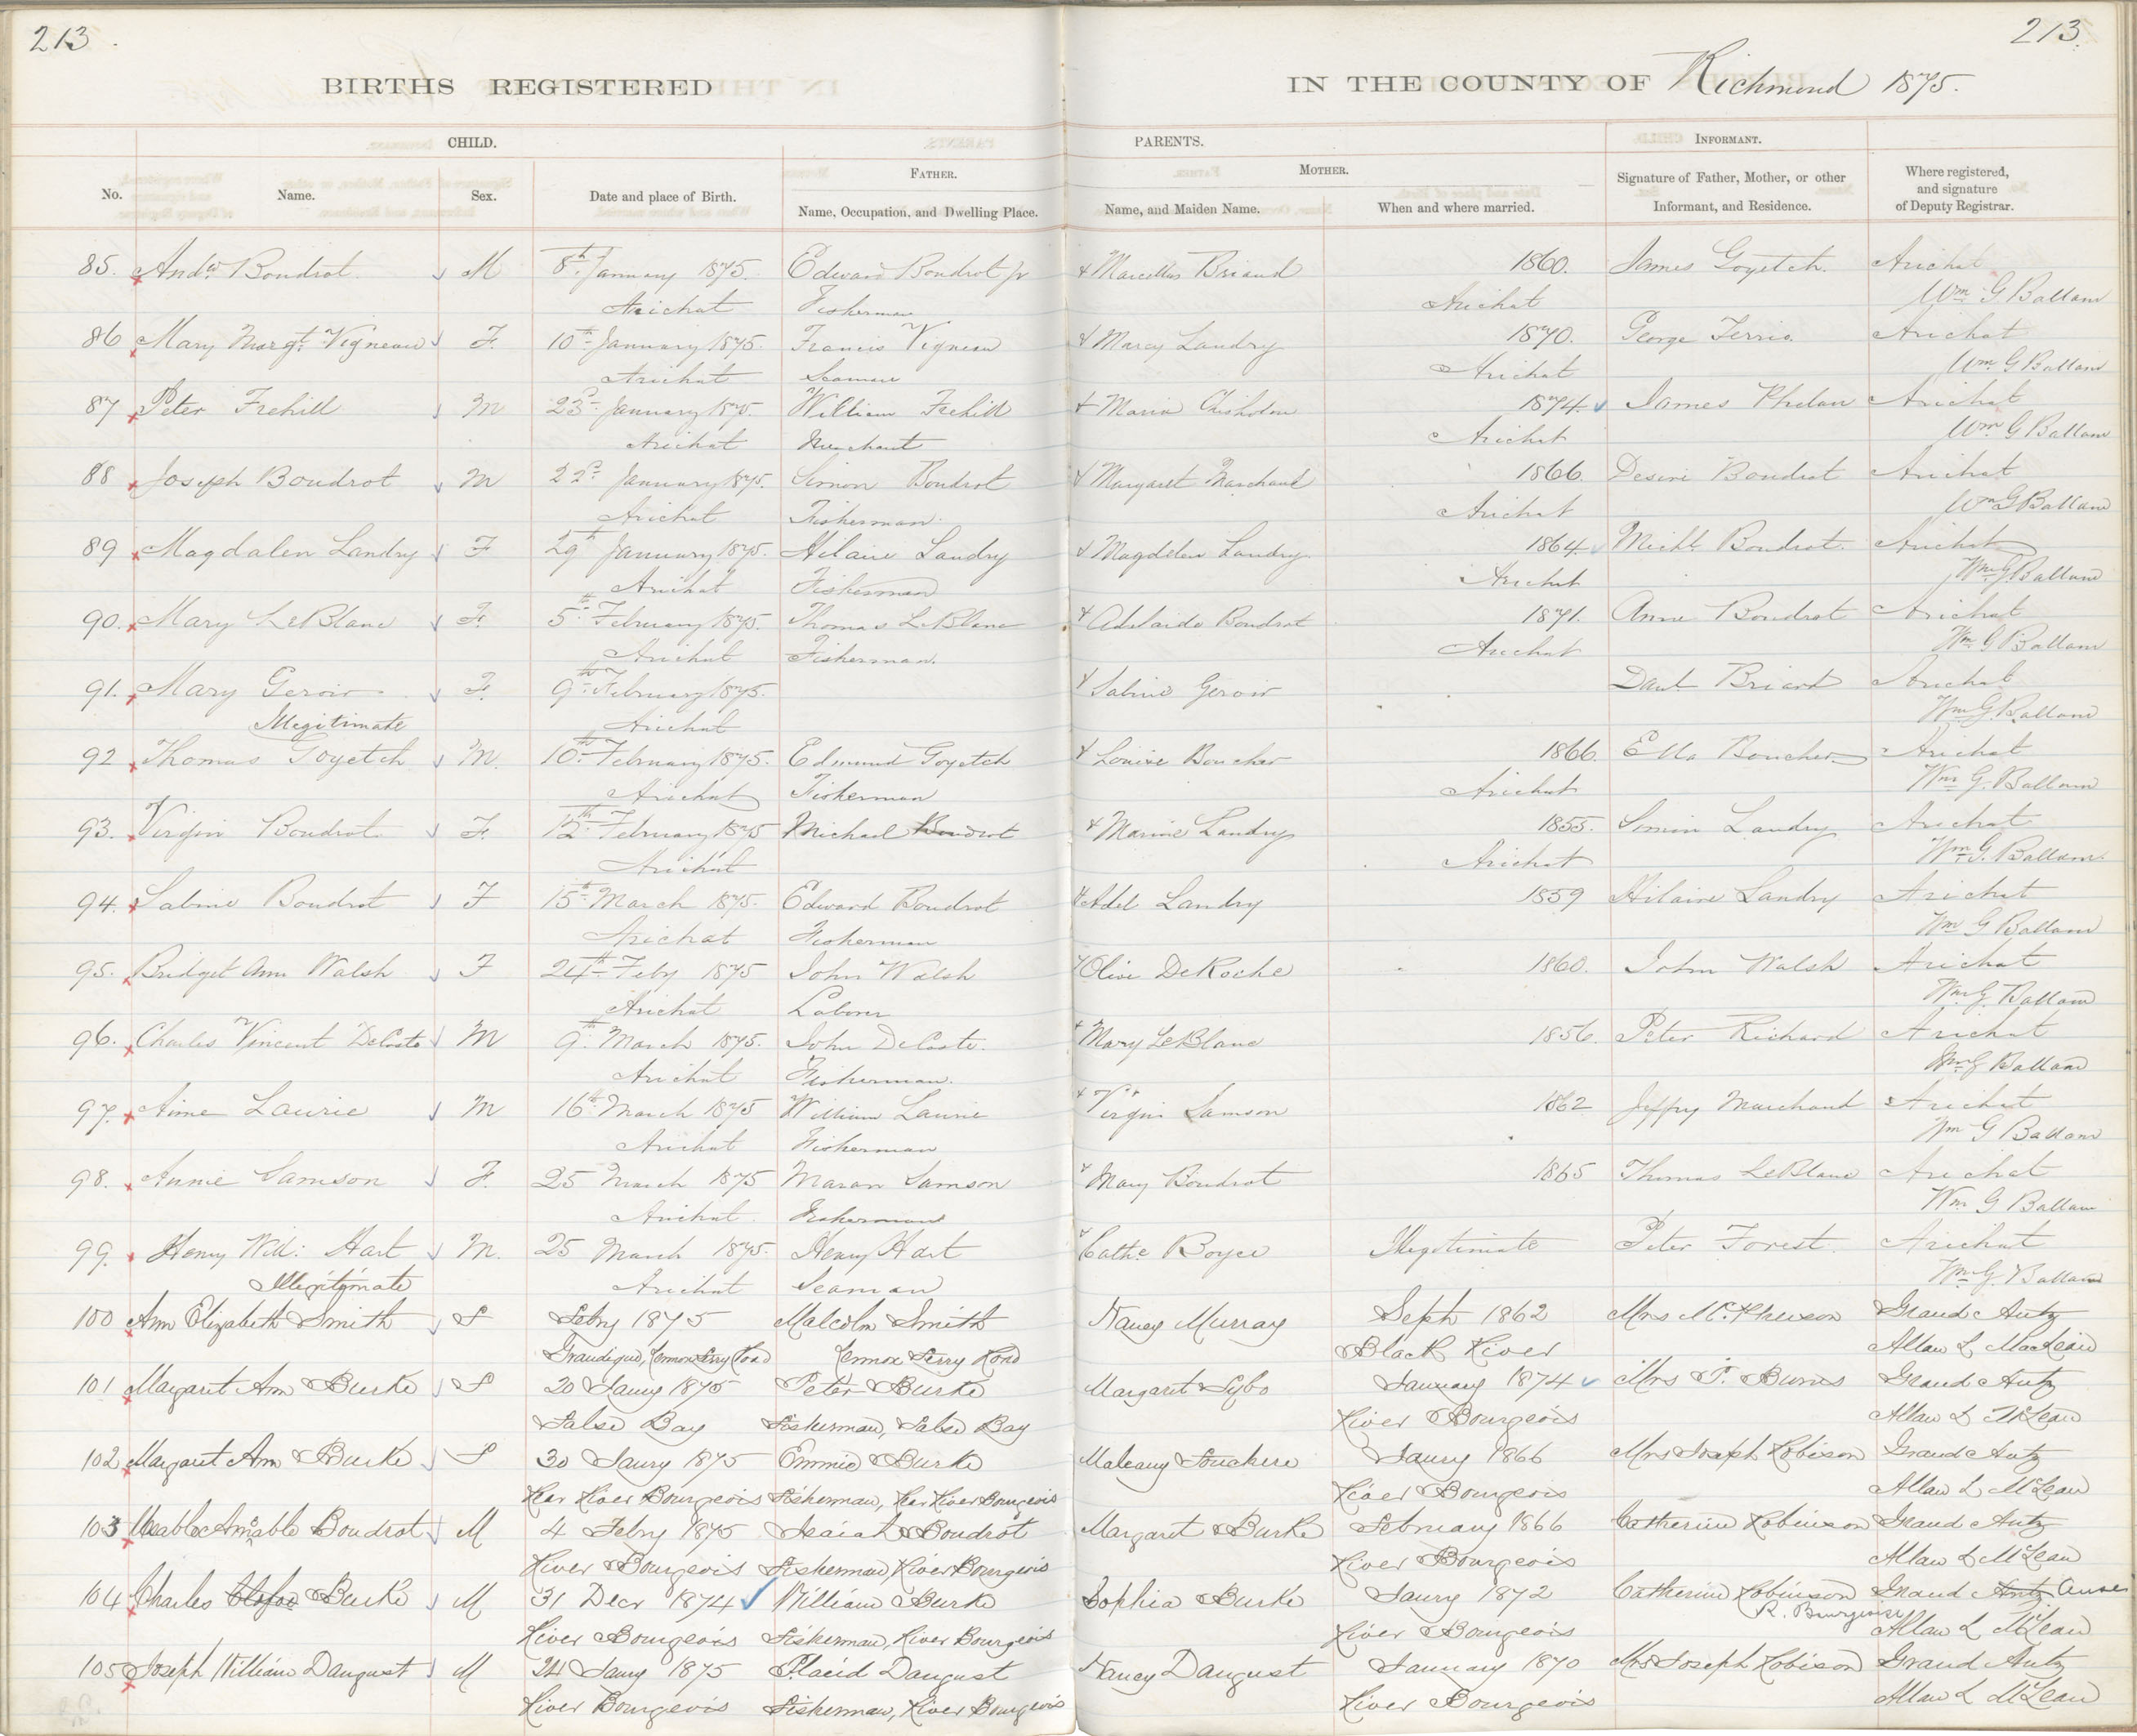 213.
213.
BIRTHS REGISTERED IN THE COUNTY OF Richmond 1875.
CHILD. PARENTS. INFORMANT.
FATHER. MOTHER.
No. Name. Sex. Date and place of Birth. Name, Occupation, and Dwelling Place. Name, and Maiden Name. When and where married. Signature of Father, Mother, or other Informant, and Residence. Where registered, and signature of Deputy Registrar.
85. Andw Boudrot M 8th January 1875. Edward Boudrot Jr Marcellus Briand 1860. James Goyetch. Arichat
Arichat Fisherman Arichat Wm G Ballam
86 Mary Margt Vigneau F. 10th January 1875. Francis Vigneau Marcy Landry 1870. George Terrio. Arichat
Arichat Seaman Arichat Wm G Ballam
87 Peter Frehill M 23d January 1875. William Frehill Maria Chisholm 1874. James Phelan Arichat
Arichat Merchant Arichat Wm G Ballam
88 Joseph Boudrot M 22d January 1875. Simon Boudrot Margaret Marchand 1866. Desire Boudrot Arichat
Arichat Fisherman. Arichat Wm G Ballam
89 Magdalen Landry F 29th January 1875. Hilaire Landry Magdelen Landry 1864. Michl Boudrot. Arichat
Arichat Fisherman Arichat Wm G Ballam
90. Mary LeBlanc F. 5th February 1875. Thomas LeBlanc Adelaide Boudrot 1871. Anne Boudrot Arichat
Arichat Fisherman. Arichat Wm G Ballam
91. Mary Geroir F. 9th February 1875. Sabine Geroir Danl Briand Arichat
Illegitimate Arichat Wm G Ballam
92 Thomas Goyetch M. 10th February 1875. Edmund Goyetch Louise Boucher 1866. Ella Boucher Arichat
Arichat Fisherman Arichat Wm G. Ballam
93. Virgin Boudrot F. 12th February 1875 Michael Boudrot Marine Landry 1855. Simon Landry Arichat
Arichat Arichat Wm G. Ballam
94. Sabine Boudrot F 15th March 1875. Edward Boudrot Adel Landry 1859 Hilaire Landry Arichat
Arichat Fisherman Wm G Ballam
95. Bridget Ann Walsh F 24th Feby 1875 John Walsh Olive DeRoche 1860. John Walsh Arichat
Arichat Laborer Wm G. Ballam
96. Charles Vincent DeCoste M 9th March 1875. John DeCoste. Mary LeBlanc 1856. Peter Richard Arichat
Arichat Fisherman. Wm G Ballam
97. Aime Laurie M 16th March 1875 William Laurie Virgin Samson 1862 Jeffry Marchand Arichat
Arichat Fisherman Wm G Ballam
98. Annie Samson F. 25 March 1875 Maran Samson Mary Boudrot 1865 Thomas LeBlanc Arichat
Arichat Fisherman Wm G Ballam
99. Henry Will: Hart M. 25 March 1875. Henry Hart Cathe Boyce Illegitimate Peter Forest Arichat
Illegitimate Arichat Seaman Wm G. Ballam
100 Ann Elizabeth Smith F Febry 1875 Malcolm Smith Nancy Murray Septr 1862 Mrs McPherson Grand Antz
Grandique, Lennox Ferry Road Lennox Ferry Road Black River Allan L MacLean
101 Margaret Ann Burke F 20 Jany 1875 Peter Burke Margaret Sybo January 1874 Mrs P. Burns Grand Antz
False Bay Fisherman, False Bay River Bourgeois Allan L McLean
102 Margaret Ann Burke F 30 Jaury 1875 Emmic Burke Maleany Fouchere Jaury 1866 Mrs Joseph Robison Grand Antz
Rear River Bourgeois Fisherman, Rear River Bourgeois River Bourgeois Allan L McLean
103 Amable Boudrot M 4 Febry 1875 Isaiah Boudrot Margaret Burke February 1866 Catherine Robinson Grand Antz
River Bourgeois Fisherman, River Bourgeois River Bourgeois Allan L McLean
104 Charles Burke M 31 Decr 1874 William Burke Sophia Burke Jaury 1872 Catherine Robinson Grand Antz Anse
River Bourgeois Fisherman, River Bourgeois River Bourgeois R. Bourgeoise Allan L McLean
105 Joseph William Daugust M 24 Jaury 1875 Placid Daugust Nancy Daugust January 1870 Mrs Joseph Robison Grand Antz
River Bourgeois Fisherman, River Bourgeois River Bourgeois Allan L McLean